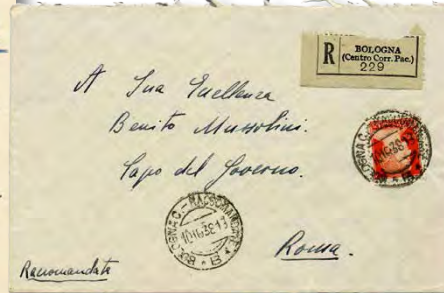 R BOLOGNA
(Centro Corr. Pac.)
229
A Sua Eccellenza
Benito Mussolini.
Capo del Governo.
Roma.
Raccomandata
BOLOGNA C. - RACCOMANDATE
* B *